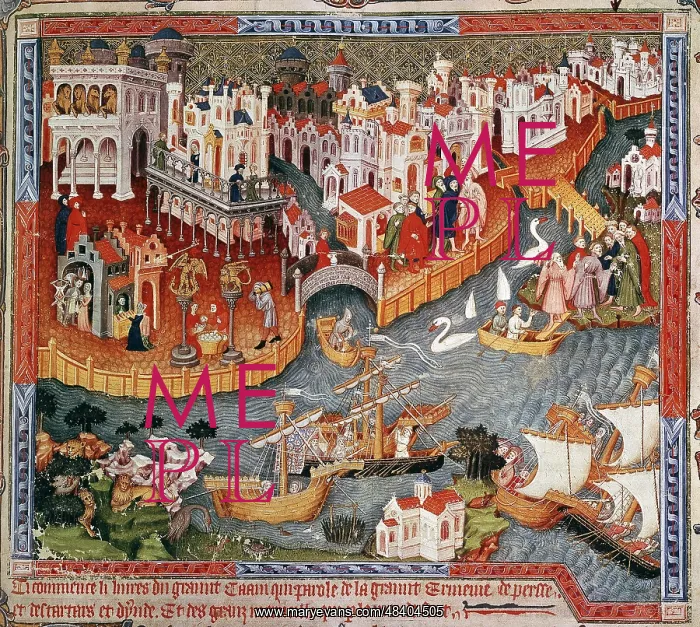 ME
PL
ME
PL
Ci commence li liures du graunt Caam qui parole de la graunt Ermenie. de perse.
et des tartars et dynde. Et des granz
www.maryevans.com/48404505